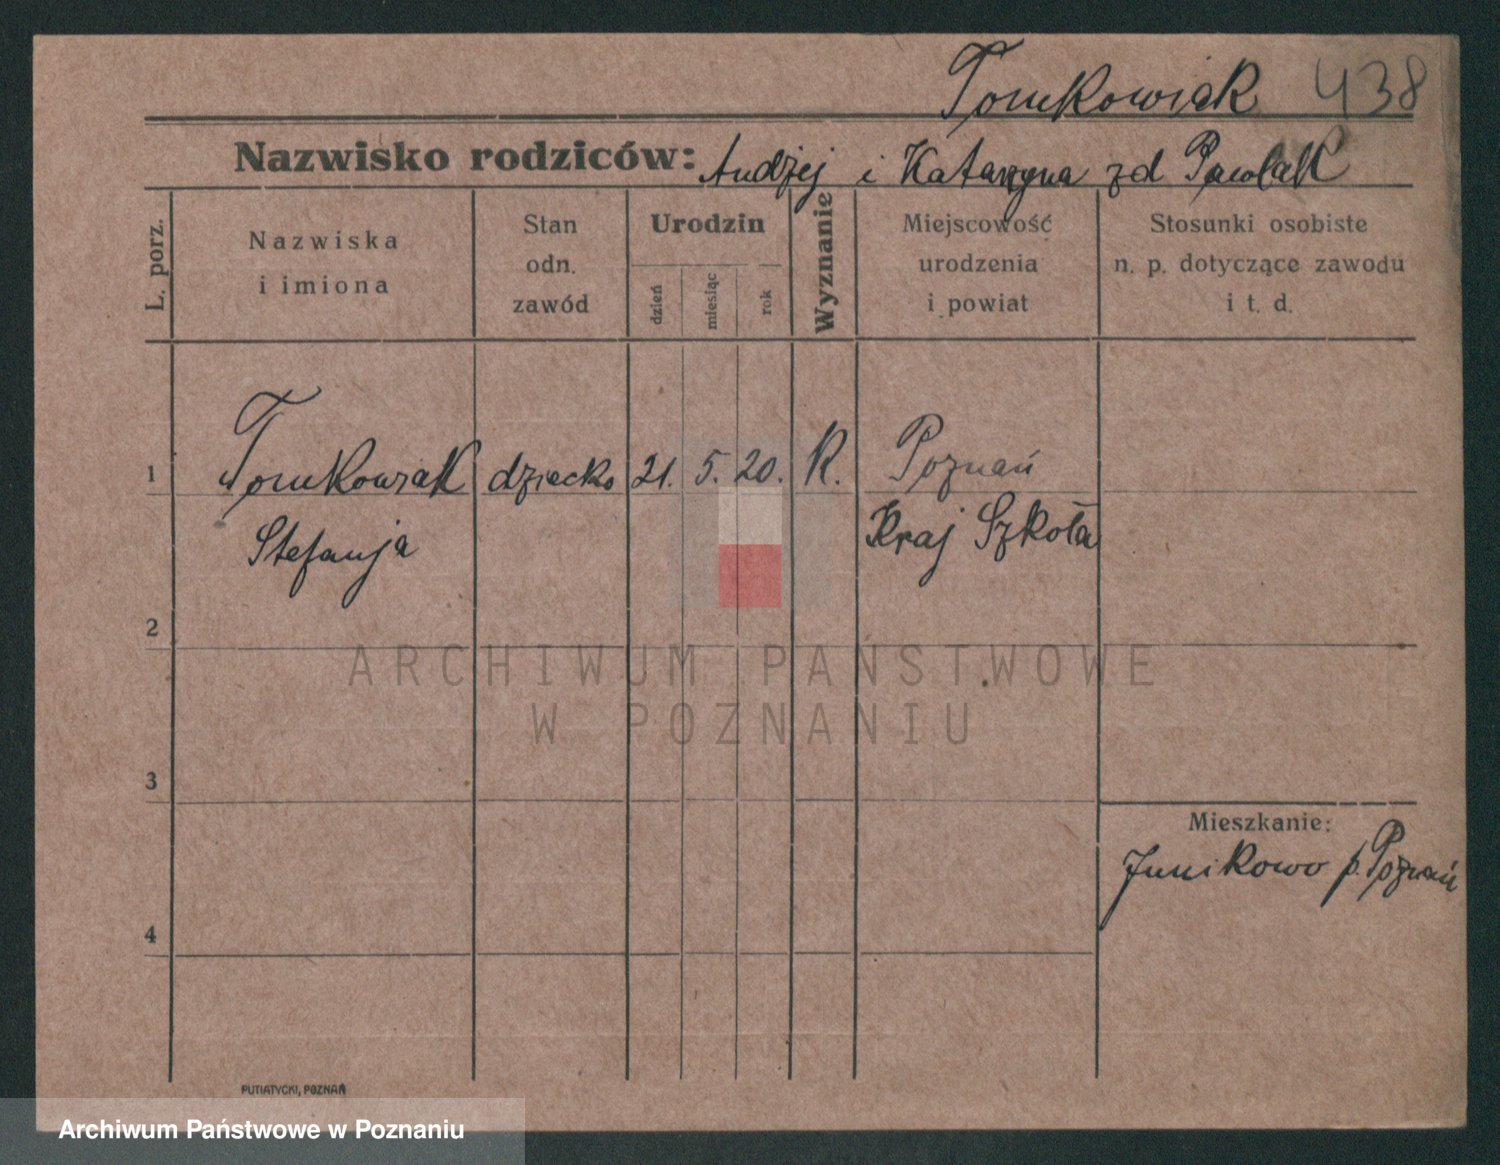 Tomkowiak 438
Nazwisko rodziców: Andżej i Katarzyna zd Pawlak
L. porz.
Nazwiska
i imiona
Stan
odn.
zawód
Urodzin
dzień
miesiąc
rok
Wyznanie
Miejscowość
urodzenia
i powiat
Stosunki osobiste
n. p. dotyczące zawodu
i t. d.
1 Tomkowiak dziecko 21. 5. 20. K. Poznań
Stefanja Kraj Szkoła
2
ARCHIWUM PAŃSTWOWE
W POZNANIU
3
Mieszkanie:
Junikowo p. Poznań
4
PUTIATYCKI, POZNAŃ
Archiwum Państwowe w Poznaniu